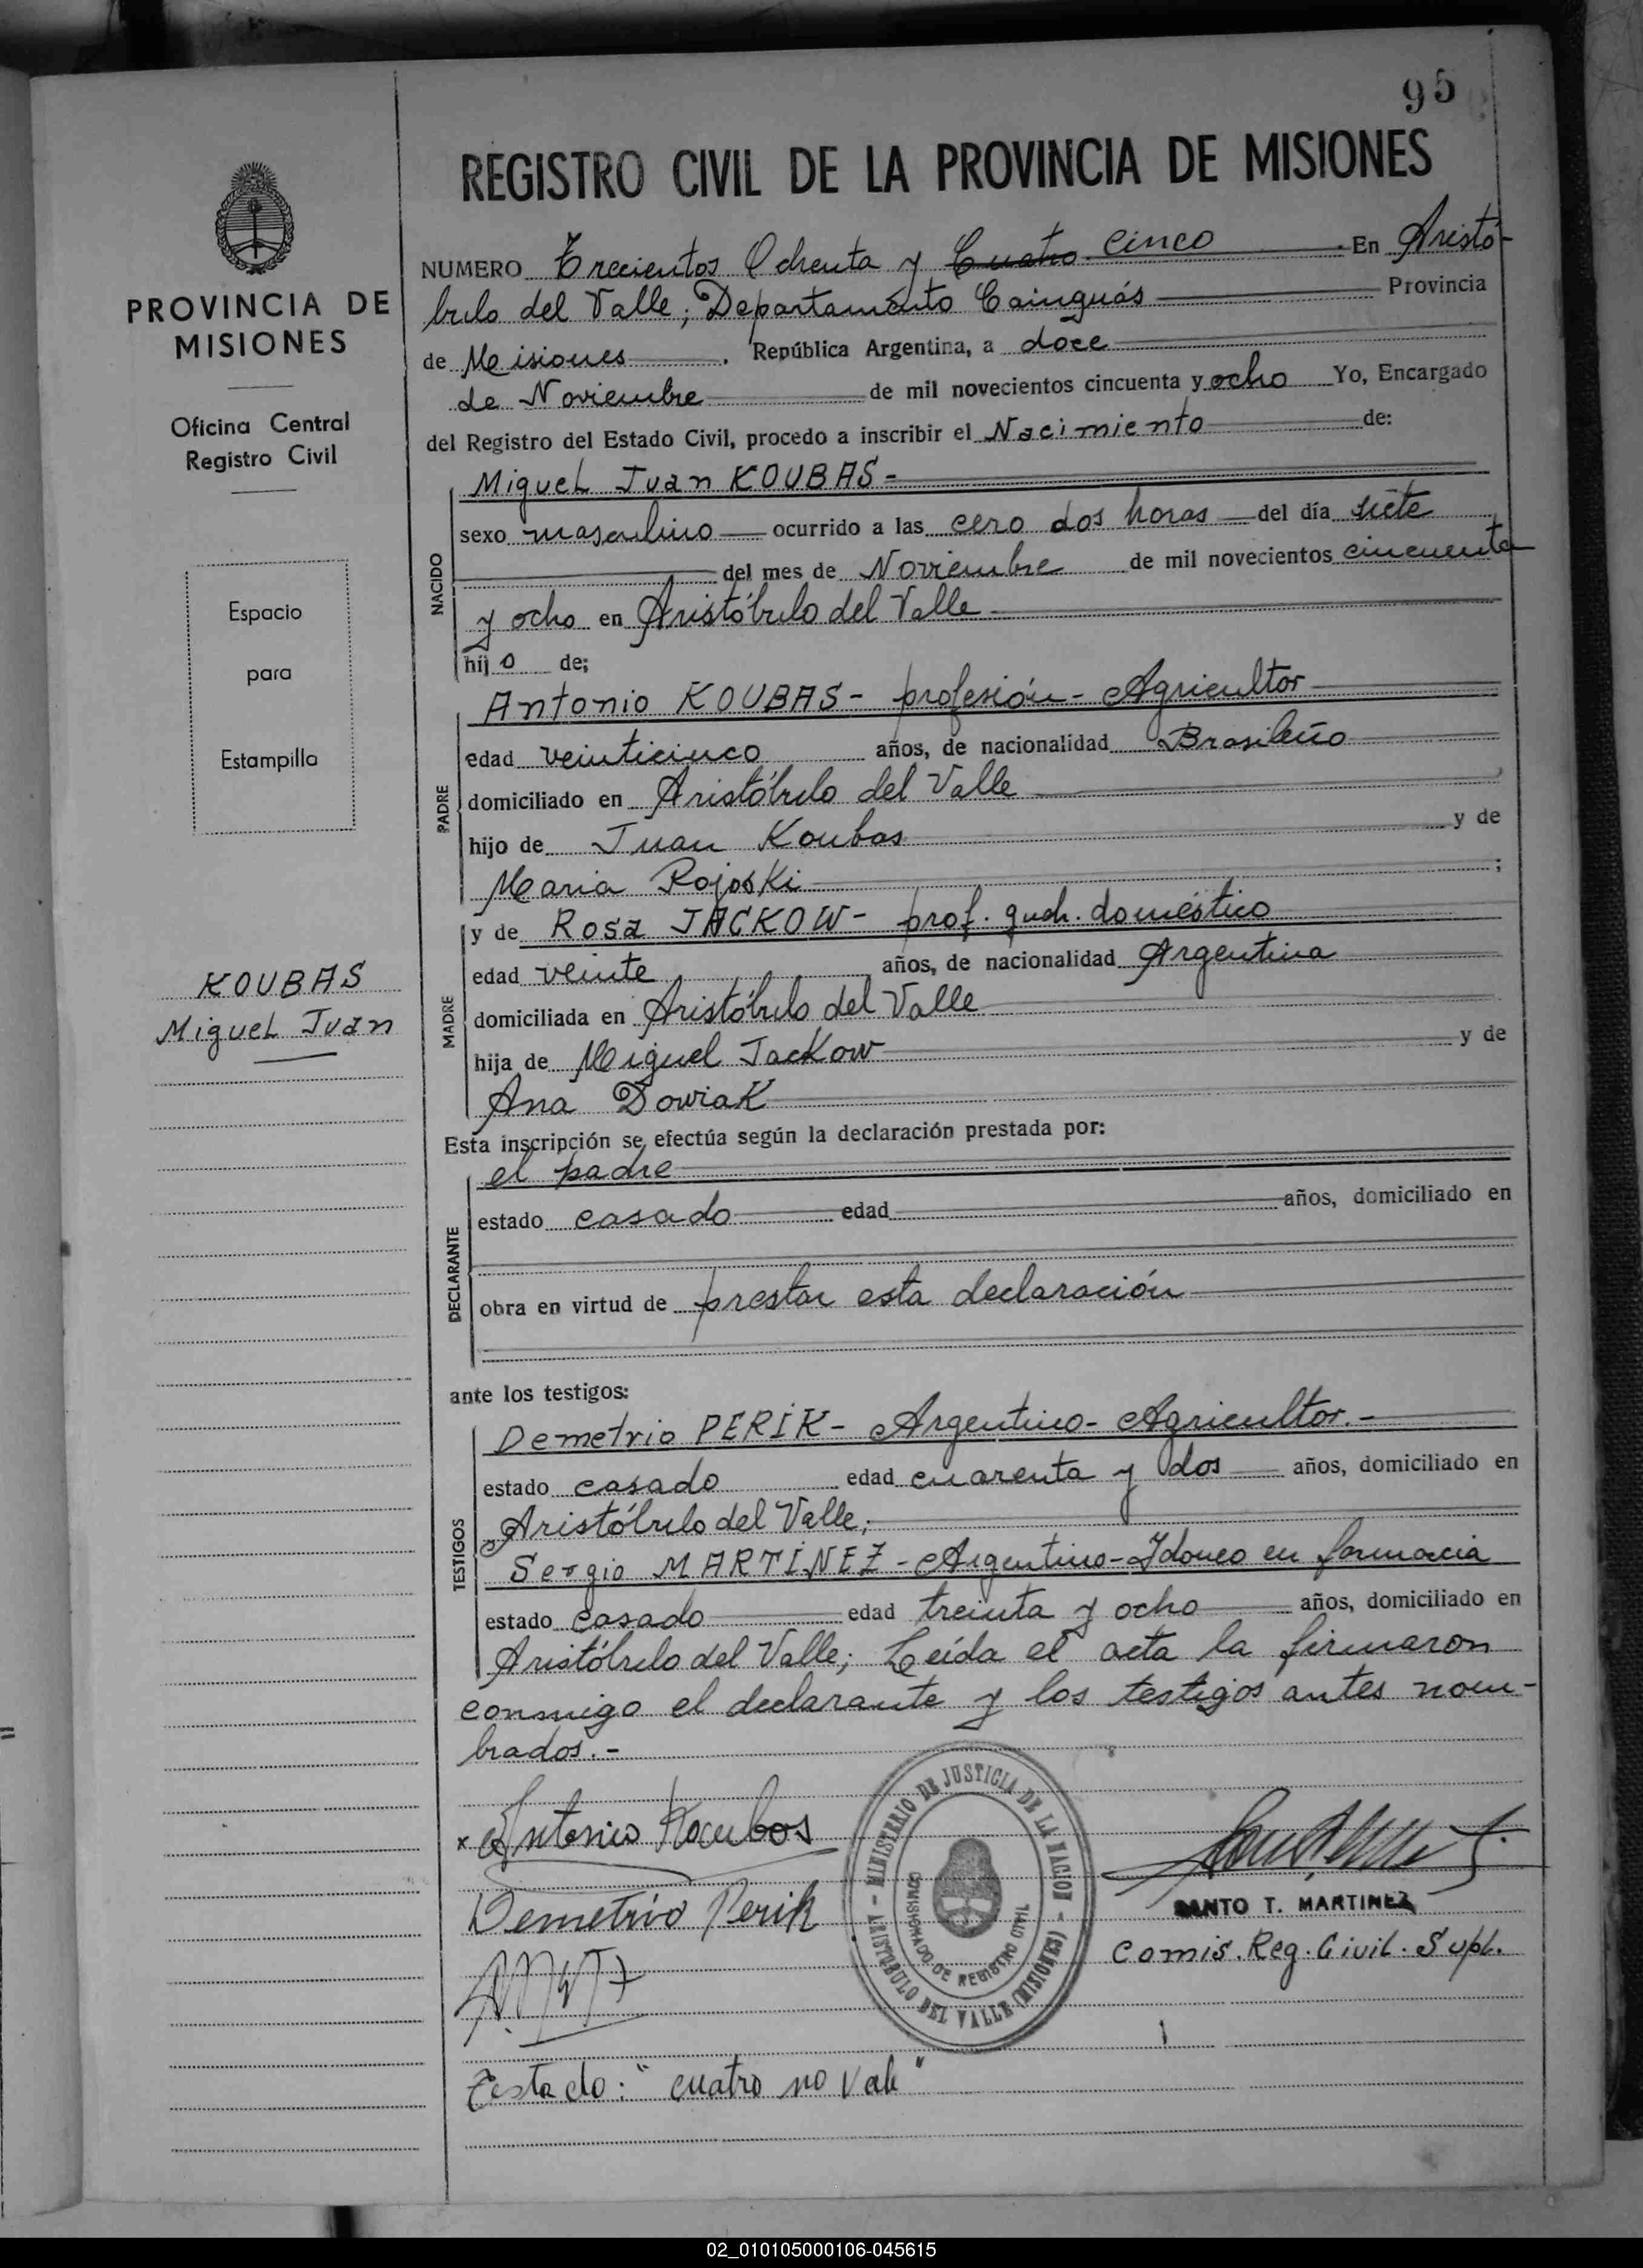 95
REGISTRO CIVIL DE LA PROVINCIA DE MISIONES
PROVINCIA DE
MISIONES
Oficina Central
Registro Civil
Espacio
para
Estampilla
KOUBAS
Miguel Juan
NUMERO Trecientos Ochenta y Cuatro cinco En Aristó-
bulo del Valle; Departamento Cainguás Provincia
de Misiones . República Argentina, a doce
de Noviembre de mil novecientos cincuenta y ocho Yo, Encargado
del Registro del Estado Civil, procedo a inscribir el Nacimiento de:
NACIDO
Miguel Juan KOUBAS-
sexo masculino ocurrido a las cero dos horas del día siete
del mes de Noviembre de mil novecientos cincuenta
y ocho en Aristóbulo del Valle
hijo de;
PADRE
Antonio KOUBAS- profesión- Agricultor
edad veinticinco años, de nacionalidad Brasileño
domiciliado en Aristóbulo del Valle
hijo de Juan Koubas y de
Maria Rojoski ;
MADRE
y de Rosa JACKOW- prof. queh. doméstico
edad veinte años, de nacionalidad Argentina
domiciliada en Aristóbulo del Valle
hija de Miguel Jackow y de
Ana Dowiak
Esta inscripción se efectúa según la declaración prestada por:
DECLARANTE
el padre
estado casado edad años, domiciliado en
obra en virtud de prestar esta declaración
ante los testigos:
TESTIGOS
Demetrio PERIK- Argentino- Agricultor.-
estado casado edad cuarenta y dos años, domiciliado en
Aristóbulo del Valle;
Sergio MARTÍNEZ- Argentino- Idoneo en farmacia
estado casado edad treinta y ocho años, domiciliado en
Aristóbulo del Valle; Leída el acta la firmaron
conmigo el declarante y los testigos antes nom-
brados.-
x Antonio Koubos
Demetrio Perik
MINISTERIO DE JUSTICIA DE LA NACION - ARISTOBULO DEL VALLE (MISIONES) -
COMISIONADO DE REGISTRO CIVIL
SANTO T. MARTINEZ
Comis. Reg. Civil. Supl.
Testado: "cuatro no vale"
02_010105000106-045615